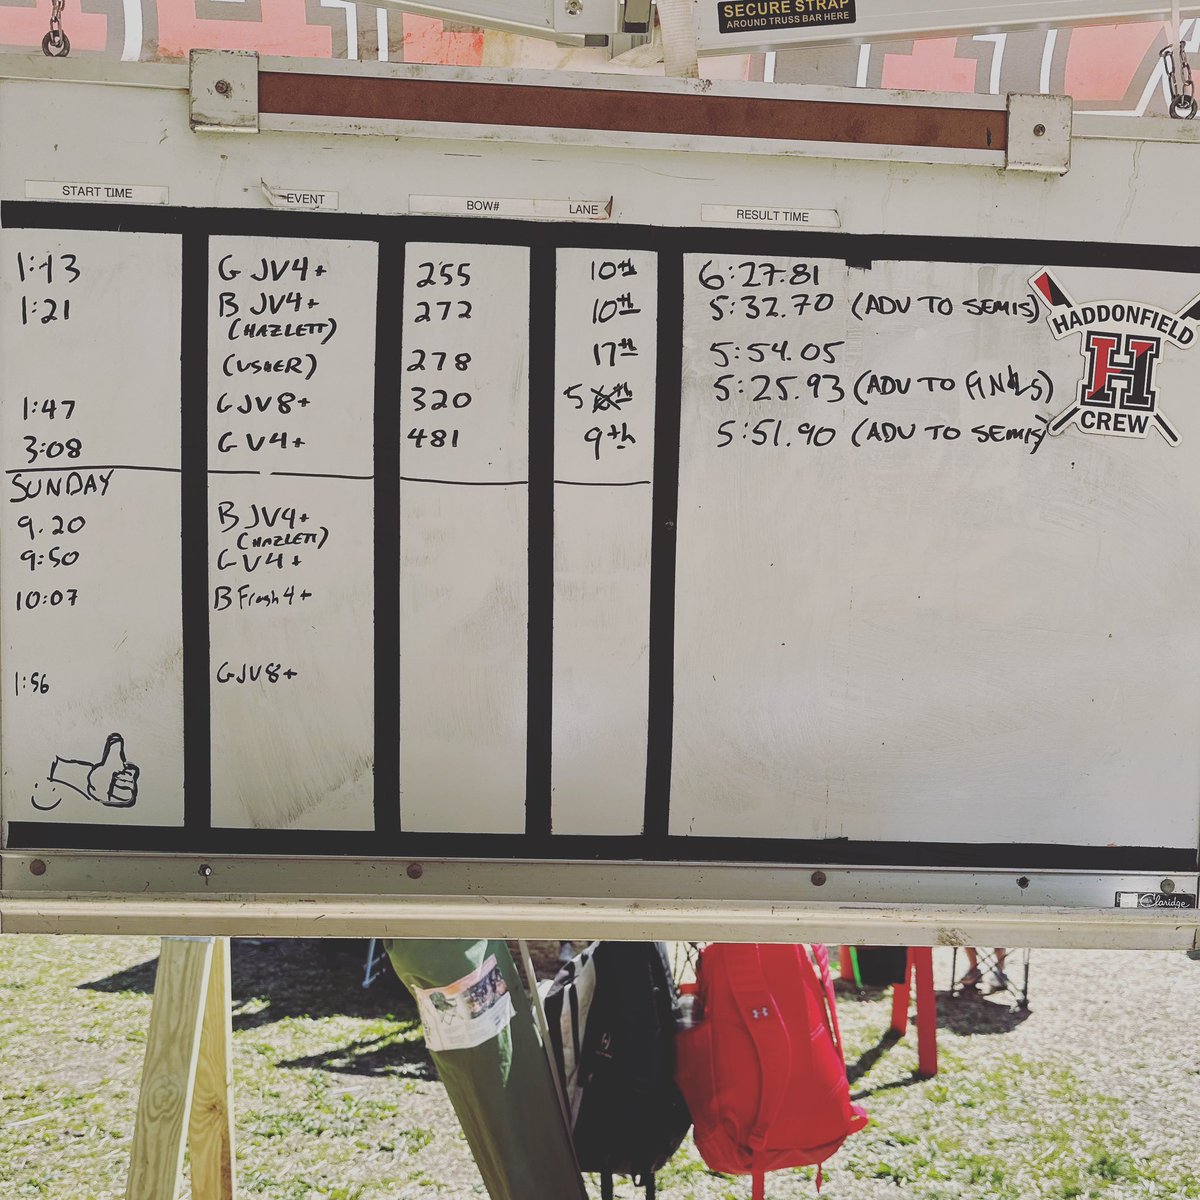 SECURE STRAP
AROUND TRUSS BAR HERE
START TIME EVENT BOW# LANE RESULT TIME
1:13 G JV4+ 255 10th 6:27.81
1:21 B JV4+ 272 10th 5:32.70 (ADV TO SEMIS)
(HAZLETT)
(USHER) 278 17th 5:54.05
1:47 GJV8+ 320 5 5:25.93 (ADV TO FINALS)
3:08 G V4+ 481 9th 5:51.90 (ADV TO SEMIS)
HADDONFIELD
H
CREW
SUNDAY
9.20 B JV4+
(HAZLETT)
9:50 G V4+
10:07 B Frosh 4+
1:56 GJV8+
Claridge